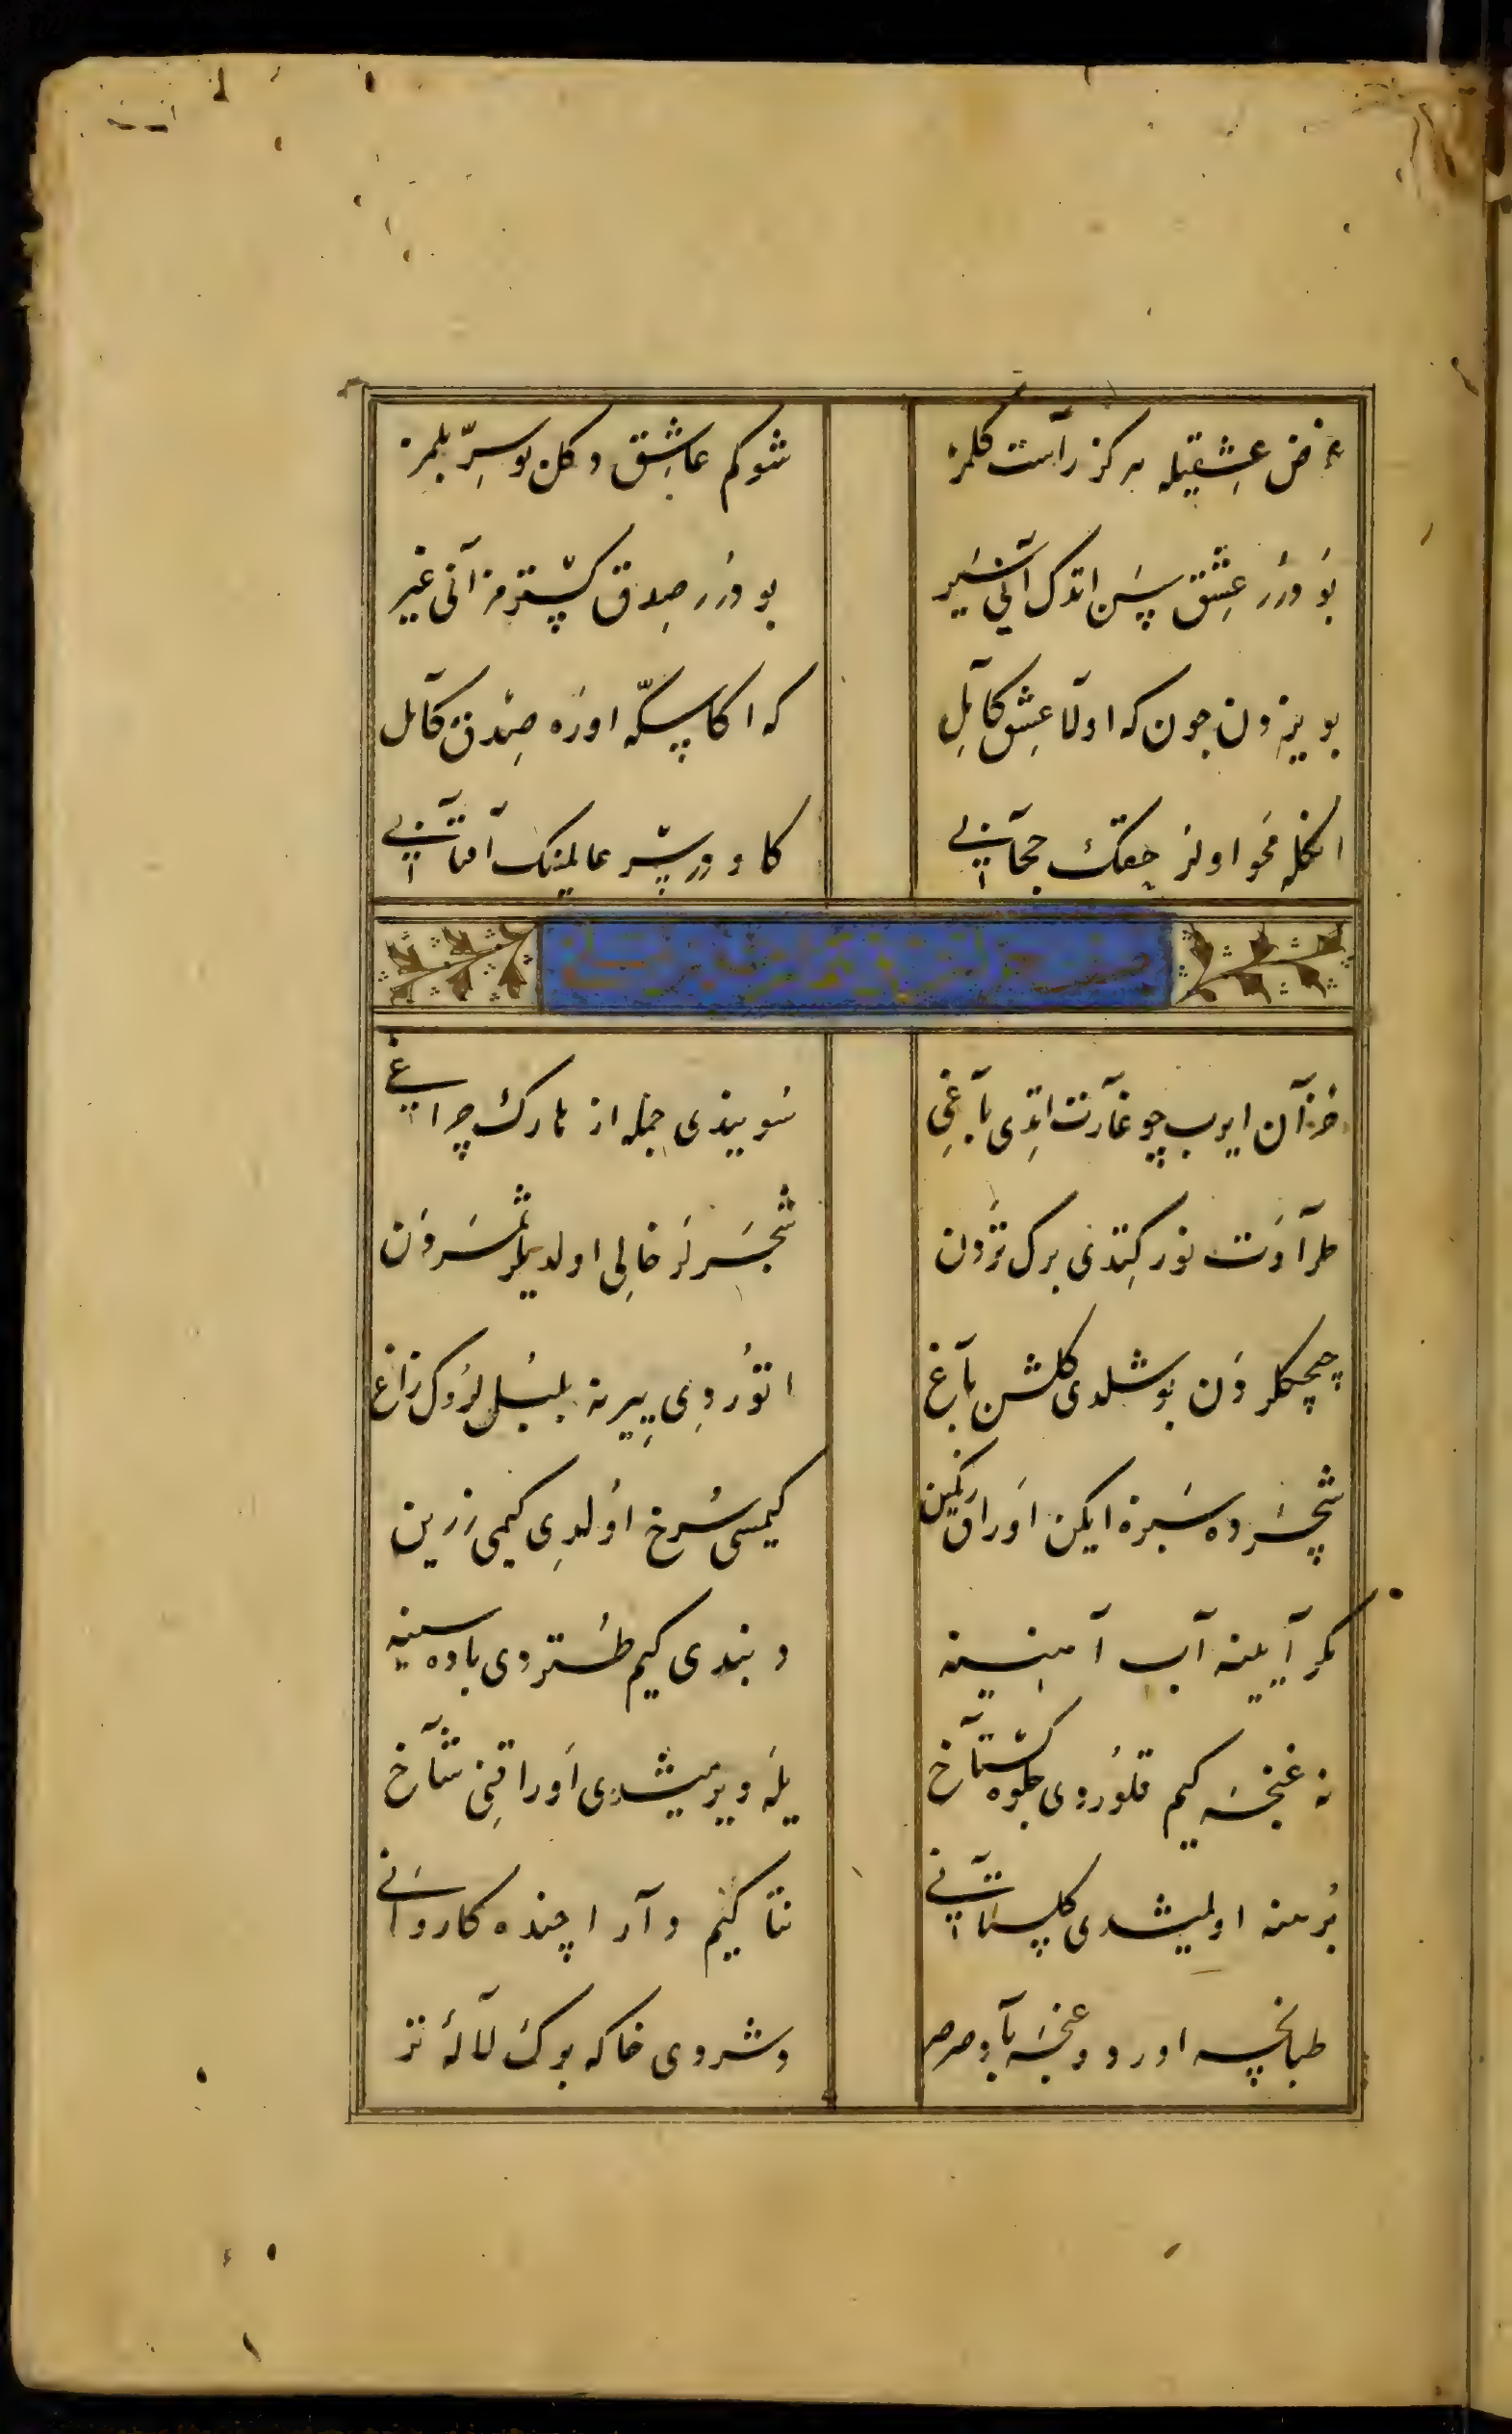 غرض عشقیله هرکز راست کلمز شوکم عاشق دکل بو سرّ بلمز
بو درر عشق پس اندک آنی سیر بو درر صدق کستر مز آنی غیر
بو یزدن چون که اولا عشق کامل که اکا سکّه اوره صدق کامل
انکله محو اولنر حقک حجابی کا و درشر عالمینک آفتابی
خزان ایرب چو غارت اتدی باغی سویندی جمله از هارک چراغی
طراوت نور کتدی برک تردن شجرلر خالی اولدیلر ثمردن
چچکلردن بوشلدی کلشن باغ اتوردی یرینه بلبللروک زاغ
شجرده سبزه ایکن اوراق رنکین کیمسی سرخ اولدی کیمی زرین
مکر آیینه آب آبنینه دیندی کیم طستردی باده سینه
نه غنچه کیم قلوردی جلوه کستاخ یله ویرمیشدی اوراقنی شاخ
برهنه اولمیشدی کلستانی نتا کیم وآر اچنده کاروانی
طپانچه اوردو غنچه باد صرصر دشردی خاکه برک لاله تر